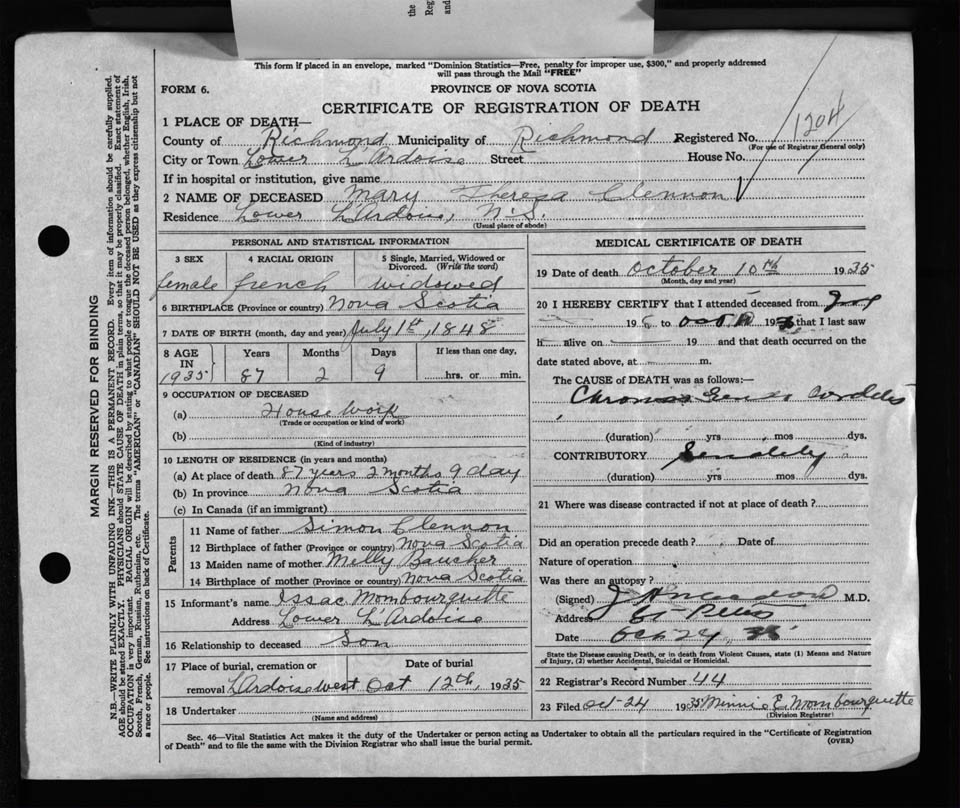 the
Reg
and
This form if placed in an envelope, marked "Dominion Statistics—Free, penalty for improper use, $300," and properly addressed
will pass through the Mail "FREE"
FORM 6. PROVINCE OF NOVA SCOTIA
CERTIFICATE OF REGISTRATION OF DEATH
1204
1 PLACE OF DEATH—
County of Richmond Municipality of Richmond Registered No.
(For use of Registrar General only)
City or Town Lower L'Ardoise Street House No.
If in hospital or institution, give name
2 NAME OF DECEASED Mary Thereza Clennon
Residence Lower L'Ardoise, N.S.
(Usual place of abode)
PERSONAL AND STATISTICAL INFORMATION
3 SEX 4 RACIAL ORIGIN 5 Single, Married, Widowed or
Divorced. (Write the word)
female french widowed
6 BIRTHPLACE (Province or country) Nova Scotia
7 DATE OF BIRTH (month, day and year) July 1st, 1848
8 AGE Years Months Days If less than one day,
IN
1935 87 2 9 hrs. or min.
9 OCCUPATION OF DECEASED
(a) House Work
(Trade or occupation or kind of work)
(b)
(Kind of industry)
10 LENGTH OF RESIDENCE (in years and months)
(a) At place of death 87 years 2 months 9 day
(b) In province Nova Scotia
(c) In Canada (if an immigrant)
Parents
11 Name of father Simon Clennon
12 Birthplace of father (Province or country) Nova Scotia
13 Maiden name of mother Melly Baucher
14 Birthplace of mother (Province or country) Nova Scotia
15 Informant's name Issac Mombourquette
Address Lower L'Ardoise
16 Relationship to deceased Son
17 Place of burial, cremation or Date of burial
removal L'Ardoise West Oct 12th, 1935
18 Undertaker
(Name and address)
MEDICAL CERTIFICATE OF DEATH
19 Date of death October 10th 1935
(Month, day and year)
20 I HEREBY CERTIFY that I attended deceased from
195 to Oct 10 193 that I last saw
h alive on 19 and that death occurred on the
date stated above, at m.
The CAUSE OF DEATH was as follows:—
(duration) yrs. mos. dys.
CONTRIBUTORY Senility
(duration) yrs. mos. dys.
21 Where was disease contracted if not at place of death?
Did an operation precede death? Date of
Nature of operation
Was there an autopsy?
(Signed) M.D.
Address St. Peters
Date Oct 24, 35
State the Disease causing Death, or in death from Violent Causes, state (1) Means and Nature
of Injury, (2) whether Accidental, Suicidal or Homicidal.
22 Registrar's Record Number 44
23 Filed Oct-24 1935 Minnie E. Mombourquette
(Division Registrar)
Sec. 46—Vital Statistics Act makes it the duty of the Undertaker or person acting as Undertaker to obtain all the particulars required in the "Certificate of Registration
of Death" and to file the same with the Division Registrar who shall issue the burial permit. (OVER)
MARGIN RESERVED FOR BINDING
N.B.—WRITE PLAINLY WITH UNFADING INK—THIS IS A PERMANENT RECORD. Every item of information should be carefully supplied.
AGE should be stated EXACTLY. PHYSICIANS should STATE CAUSE OF DEATH in plain terms, so that it may be properly classified. Exact statement of
OCCUPATION is very important. RACIAL ORIGIN will be described by stating to what people or tongue the deceased person belonged, whether English, Irish,
Scotch, French, German, Russian, Ruthenian, etc. The terms "AMERICAN" or "CANADIAN" SHOULD NOT BE USED as they express citizenship but not
a race or people. See instructions on back of Certificate.